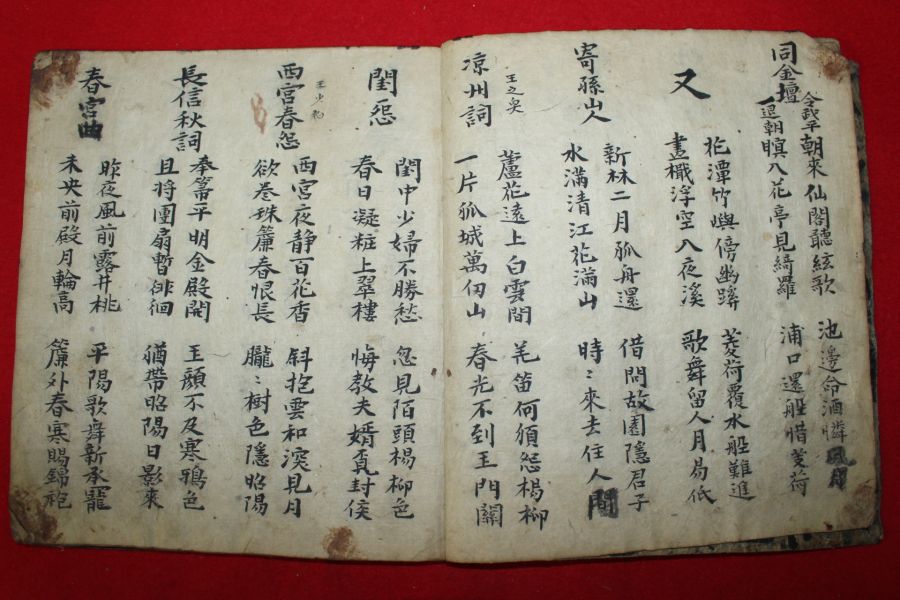 同金壇
令武平
一退朝
朝來仙閣聽絃歌 池邊命酒憐風月
暝入花亭見綺羅 浦口還船惜芰荷
又
花潭竹嶼傍幽蹊 芰荷覆水船難進
畫檝浮空入夜溪 歌舞留人月易低
寄孫山人
新林二月孤舟還 借問故園隱君子
水滿清江花滿山 時〻來去住人間
凉州詞 王之奐
蘆花遠上白雲間 羌笛何須怨楊柳
一片孤城萬仞山 春光不到玉門關
閨怨
閨中少婦不勝愁 忽見陌頭楊柳色
春日凝粧上翠樓 悔教夫婿覓封侯
西宮春怨 王少伯
西宮夜静百花香 斜抱雲和深見月
欲巻珠簾春恨長 朧〻樹色隱昭陽
長信秋詞
奉箒平明金殿開 玉顔不及寒鴉色
且將團扇暫徘徊 猶帶昭陽日影來
春宮曲
昨夜風前露井桃 平陽歌舞新承寵
未央前殿月輪高 簾外春寒賜錦袍